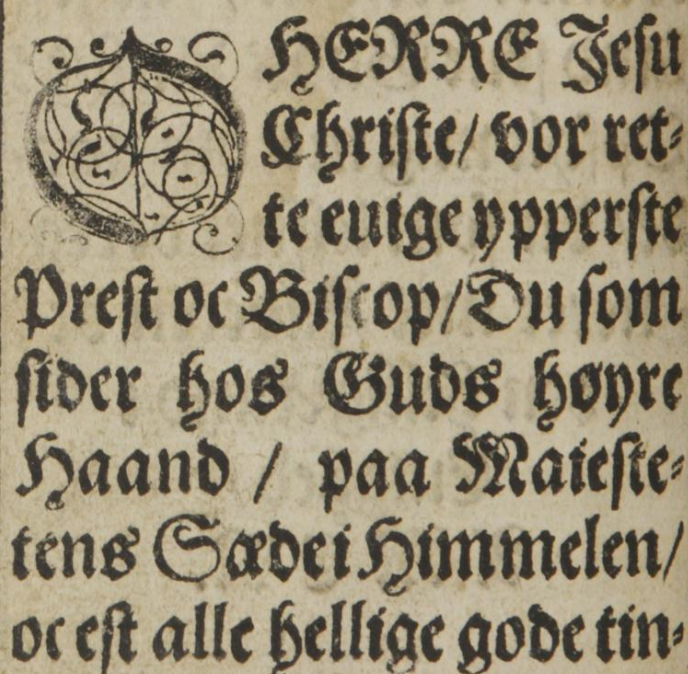 O HERRE Jesu
Christe/ vor ret-
te euige ypperste
Prest oc Biscop/ Du som
sider hos Guds høyre
Haand / paa Maieste-
tens Sæde i Himmelen/
oc est alle hellige gode tin-